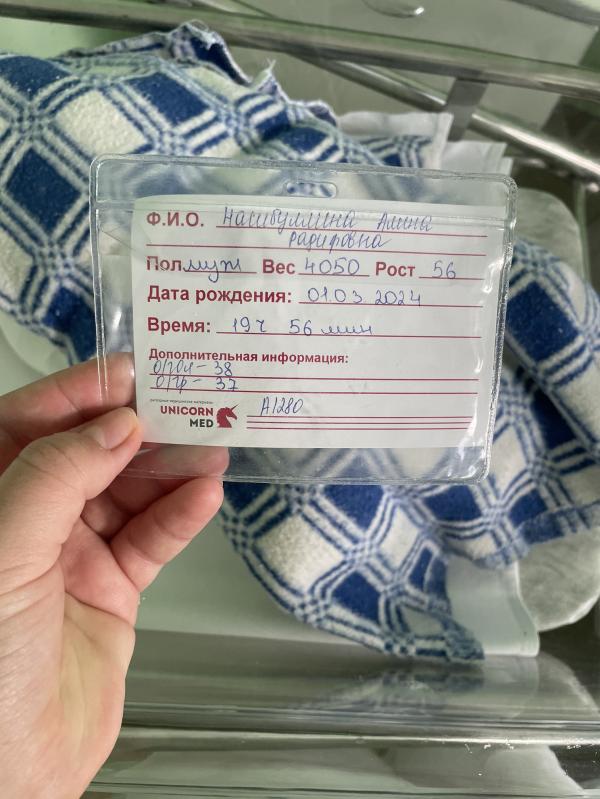 Ф.И.О. Насибуллина Алина
Радифовна
Пол муж Вес 4050 Рост 56
Дата рождения: 01.03.2024
Время: 19ч 56 мин
Дополнительная информация:
О/гол – 38
О/гр – 37
UNICORN
MED
А1280